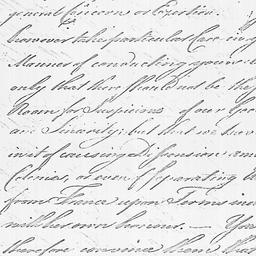 general Concern or Exertion
however take particular Care in y
Manner of conducting yoursel
only that there should not be the
Room for Suspicions of our Goo
and Sincerity; but that we have
in it of causing a Dissension am
Colonies, or even of separating
from France upon Terms in
with her own honour. — You
therefore convince them that